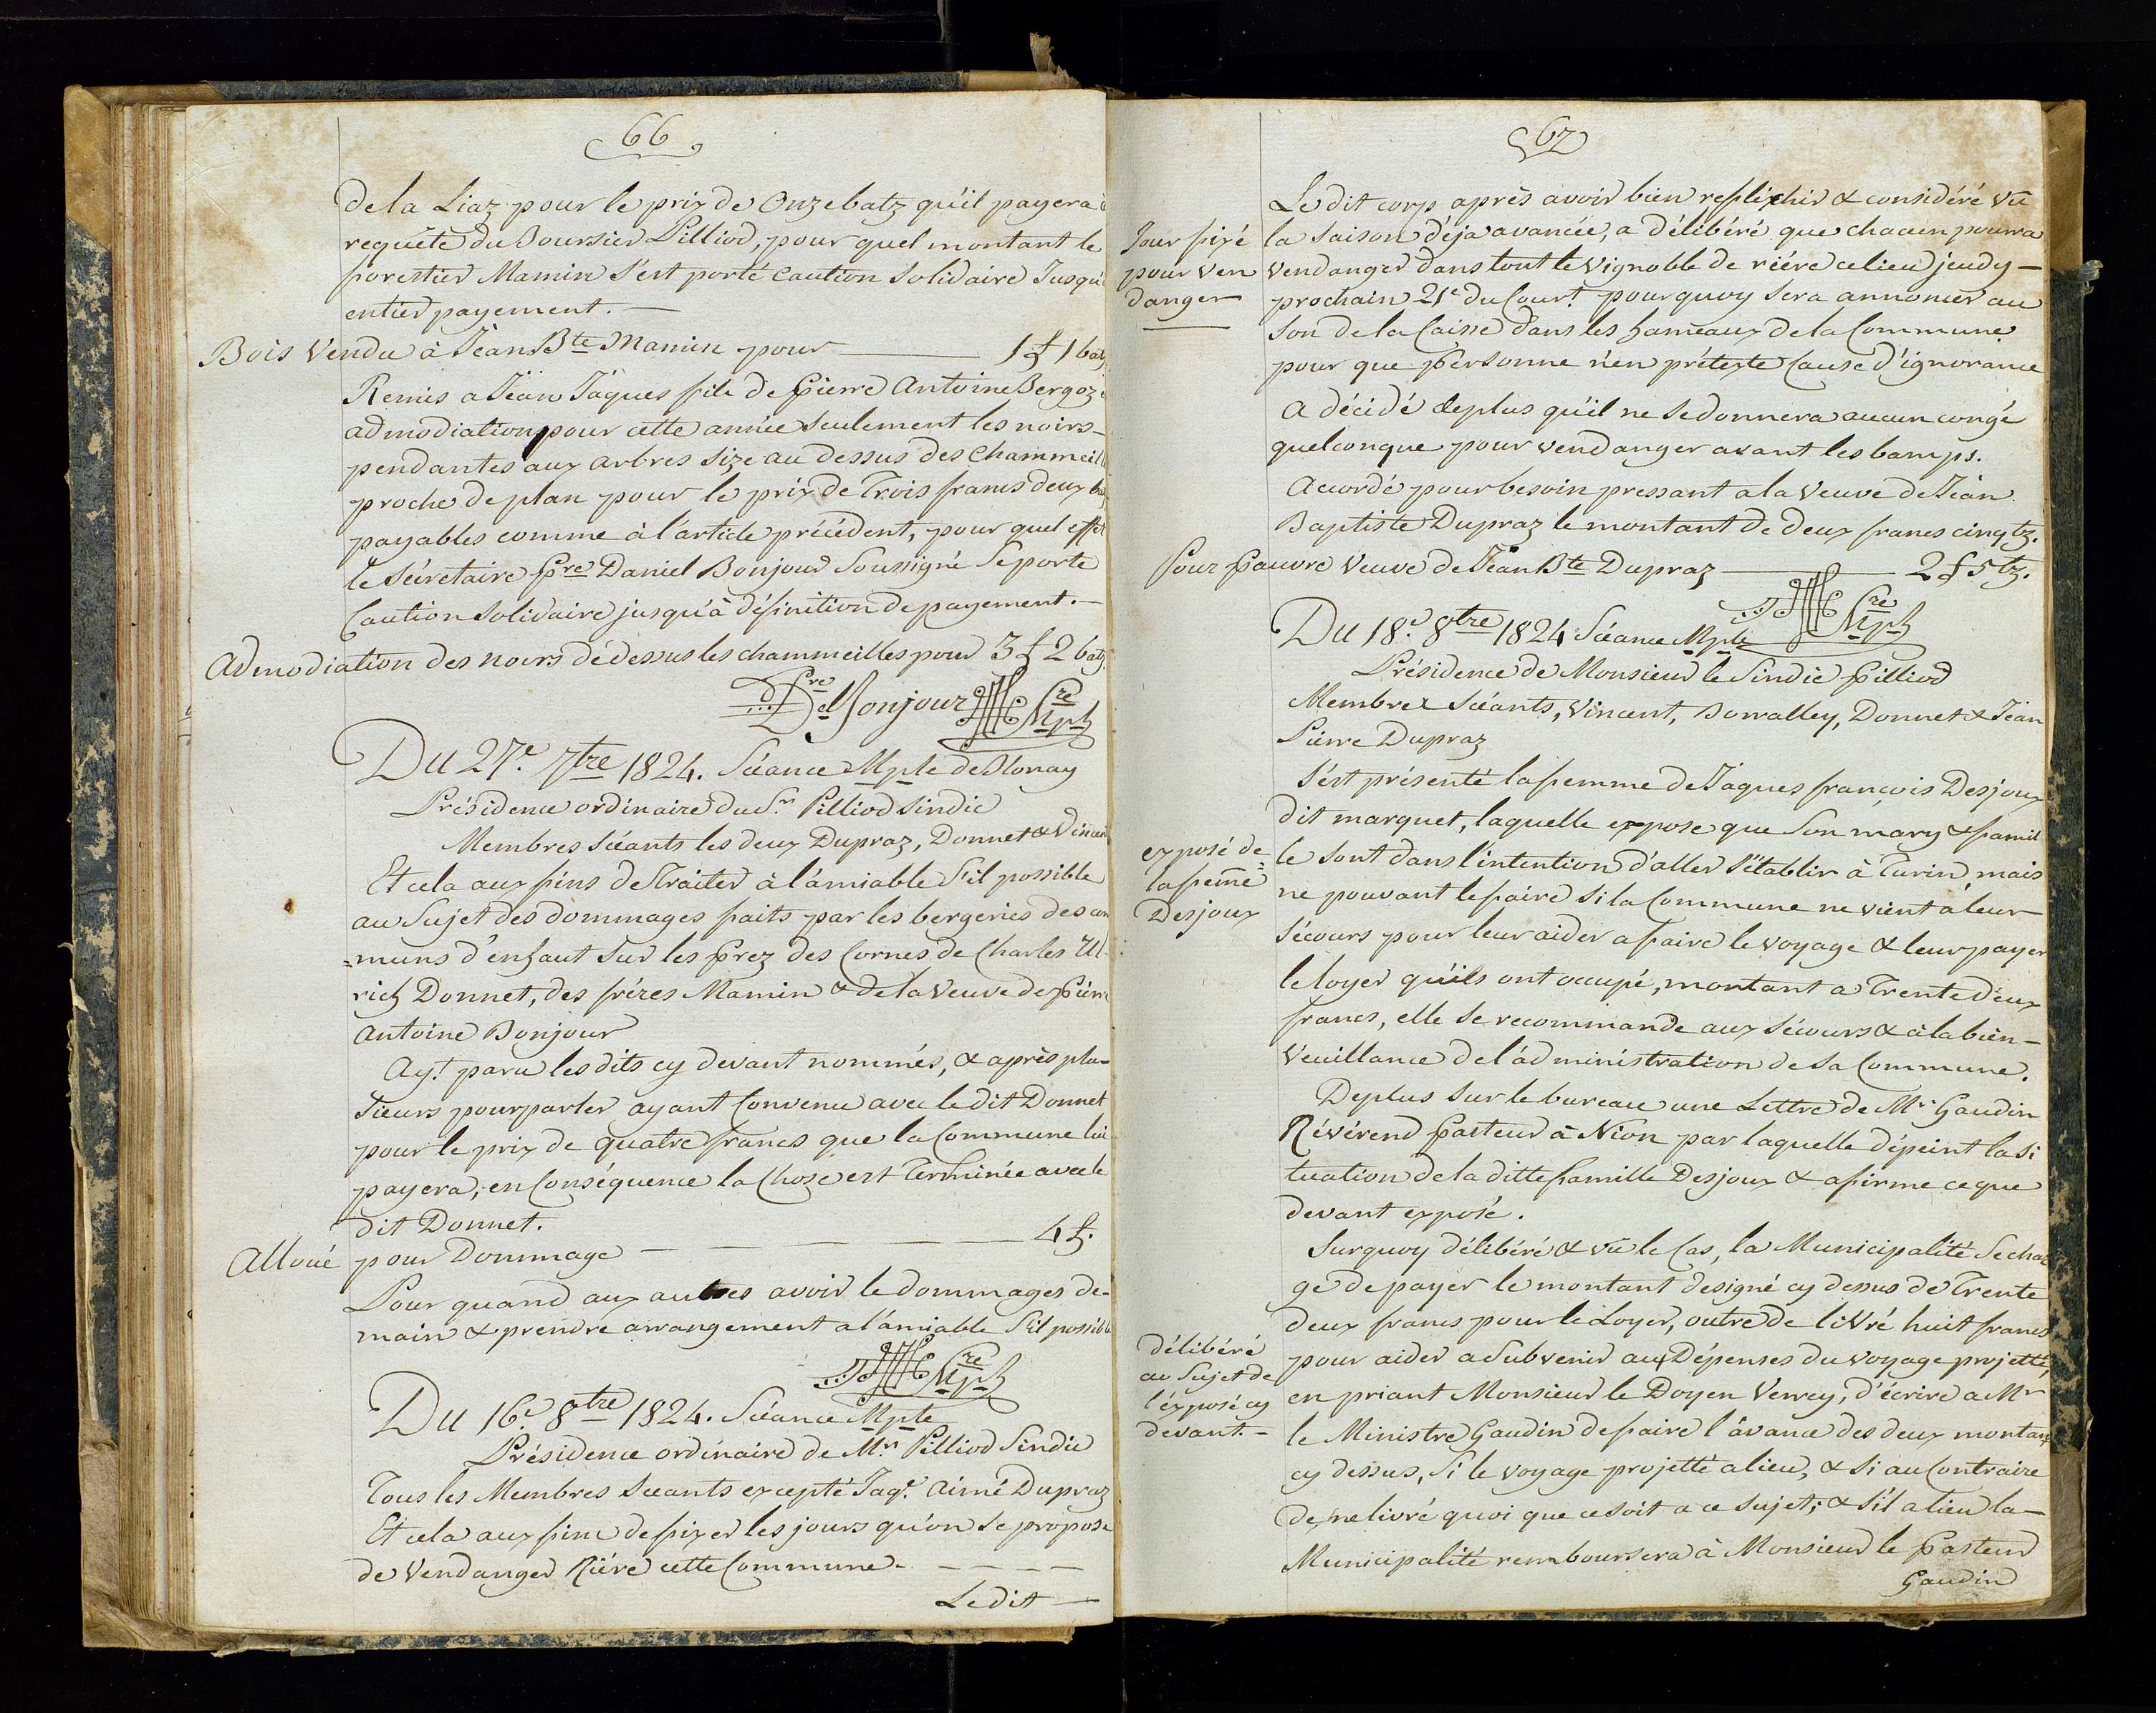 66
de la Liaz pour le prix de Onze batz qu'il payera à
requête du Boursier Pilliod, pour quel montant le
forestier Mamin s'est porté caution Solidaire Jusqu'à
entier payement. —
Bois Vendu à Jean Bte Mamin pour — 1 f 1 batz
Remis a Jean Jaques fils de Pierre Antoine Bergoz
admodiation pour cette année seulement les noirs
pendantes aux arbres size au dessus des Chammeilles
proche de plan pour le prix de Trois francs deux batz
payables comme à l'article précédent, pour quel effet
le Sécretaire Pre Daniel Bonjour Soussigné Se porte
Caution Solidaire jusqu'à définition de payement. —
Admodiation des noirs dédessus les chammeilles pour 3 f 2 batz
Pre Del Bonjour Sre Mph
Du 27e 7tre 1824. Séance Mple de Blonay
Présidence ordinaire du Sr. Pilliod Sindic
Membres Séants les deux Dupraz, Donnet & Vincent
Et cela aux fins de Traiter à l'amiable S'il possible
au Sujet des dommages faits par les bergeries des com
=muns d'enhaut Sur les Prez des Cornes de Charles Ul-
rich Donnet, des frères Mamin & de la Veuve de Pierre
Antoine Bonjour
Ayt. paru les dits cy devant nommés, & après plu-
sieurs pourparler ayant Convenu avec le dit Donnet
pour le prix de quatre francs que la Commune lui
payera, en Conséquence la Chose est Terminée avec le
dit Donnet.
Alloué pour Dommage — — — — — 4 f.
Pour quand aux autres avoir le dommages de-
main & prendre arrangement a l'amiable S'il possible
Sre Mph
Du 16e 8tre 1824. Séance Mple
Présidence ordinaire de Mr. Pilliod Sindic
Tous les Membres Séants excepté Jaqe. Aimé Dupraz
Et cela aux fins de fixer les jours qu'on se propose
de Vendanger Riére cette Commune - — — —
Le dit —
67
Le dit corp après avoir bien refléxhir & considéré Vu
Jour fixé la Saison déja avancée, a délibéré que chacun pourra
pour ven vendanger dans tout le Vignoble de riére ce lieu jeudy —
danger prochain 21e du Court. pourquoy Sera annoncer au
Son de la Caisse dans les hameaux de la Commune
pour que personne n'en prétexte Cause d'ignorance
A décidé de plus qu'il ne se donnera aucun congé
quelconque pour vendanger avant les bamps.
Accordé pour besoin pressant a la Veuve de Jean
Baptiste Dupraz le montant de deux francs cinq tz.
Pour Pauvre Veuve de Jean Bte Dupraz — 2 f 5 tz.
Sre Mph
Du 18e. 8tre 1824 Séance Mple
Présidence de Monsieur le Sindic Pilliod
Membres Séants, Vincent, Borralley, Donnet & Jean
Pierre Dupraz
S'est présenté la femme de Jaques françois Desjoux
dit marquet, laquelle expose que Son mary & famil
exposé de= le sont dans l'intention d'aller S'établir à Turin mais
la feme ne pouvant le faire Si la Commune ne vient à leur —
Desjoux sécours pour leur aider a faire le voyage & leur payer
le loyer qu'ils ont occupé, montant a Trente deux
francs, elle se recommande aux sécours & à la bien-
veuillance de l'administration de Sa Commune.
De plus Sur le bureau une Lettre de Mr. Gaudin
Révérend Pasteur à Nion par laquelle dépeint la Si
tuation de la ditte famille Desjoux & afirme ce que
devant exposé.
Surquoy délibéré & vû le Cas, la Municipalité Se char
ge de payer le montant désigné cy dessus de Trente
deux francs pour le Loyer, outre de livré huit francs
délibéré pour aider a Subvenir aux Dépenses du voyage projetté,
au Sujet de en priant Monsieur le Doyen Verrey, d'écrire a Mr
l'éxposé cy le Ministre Gaudin de faire l'avance des deux montaux
devant. — cy dessus, Si le voyage projetté a lieu, & Si au Contraire
de ne livré quoi que ce soit a ce sujet; & s'il a lieu la —
Municipalité remboursera à Monsieur le Pasteur
Gaudin